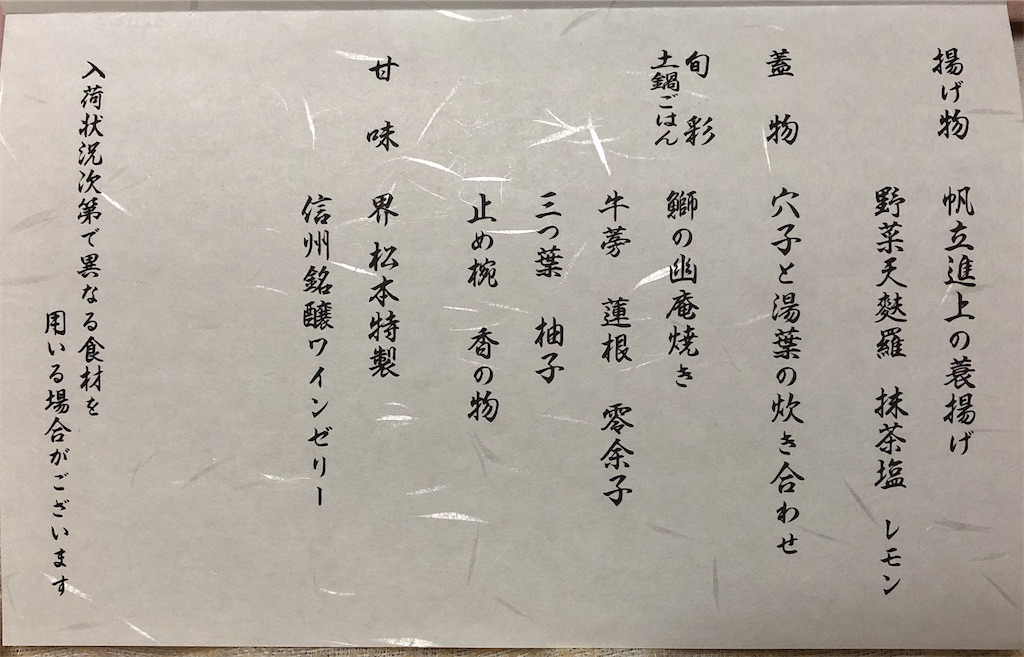 揚げ物 帆立進上の蓑揚げ
野菜天麩羅 抹茶塩 レモン
蓋物 穴子と湯葉の炊き合わせ
旬彩
土鍋ごはん 鰤の幽庵焼き
牛蒡 蓮根 零余子
三つ葉 柚子
止め椀 香の物
甘味 界 松本特製
信州銘醸ワインゼリー
入荷状況次第で異なる食材を
用いる場合がございます